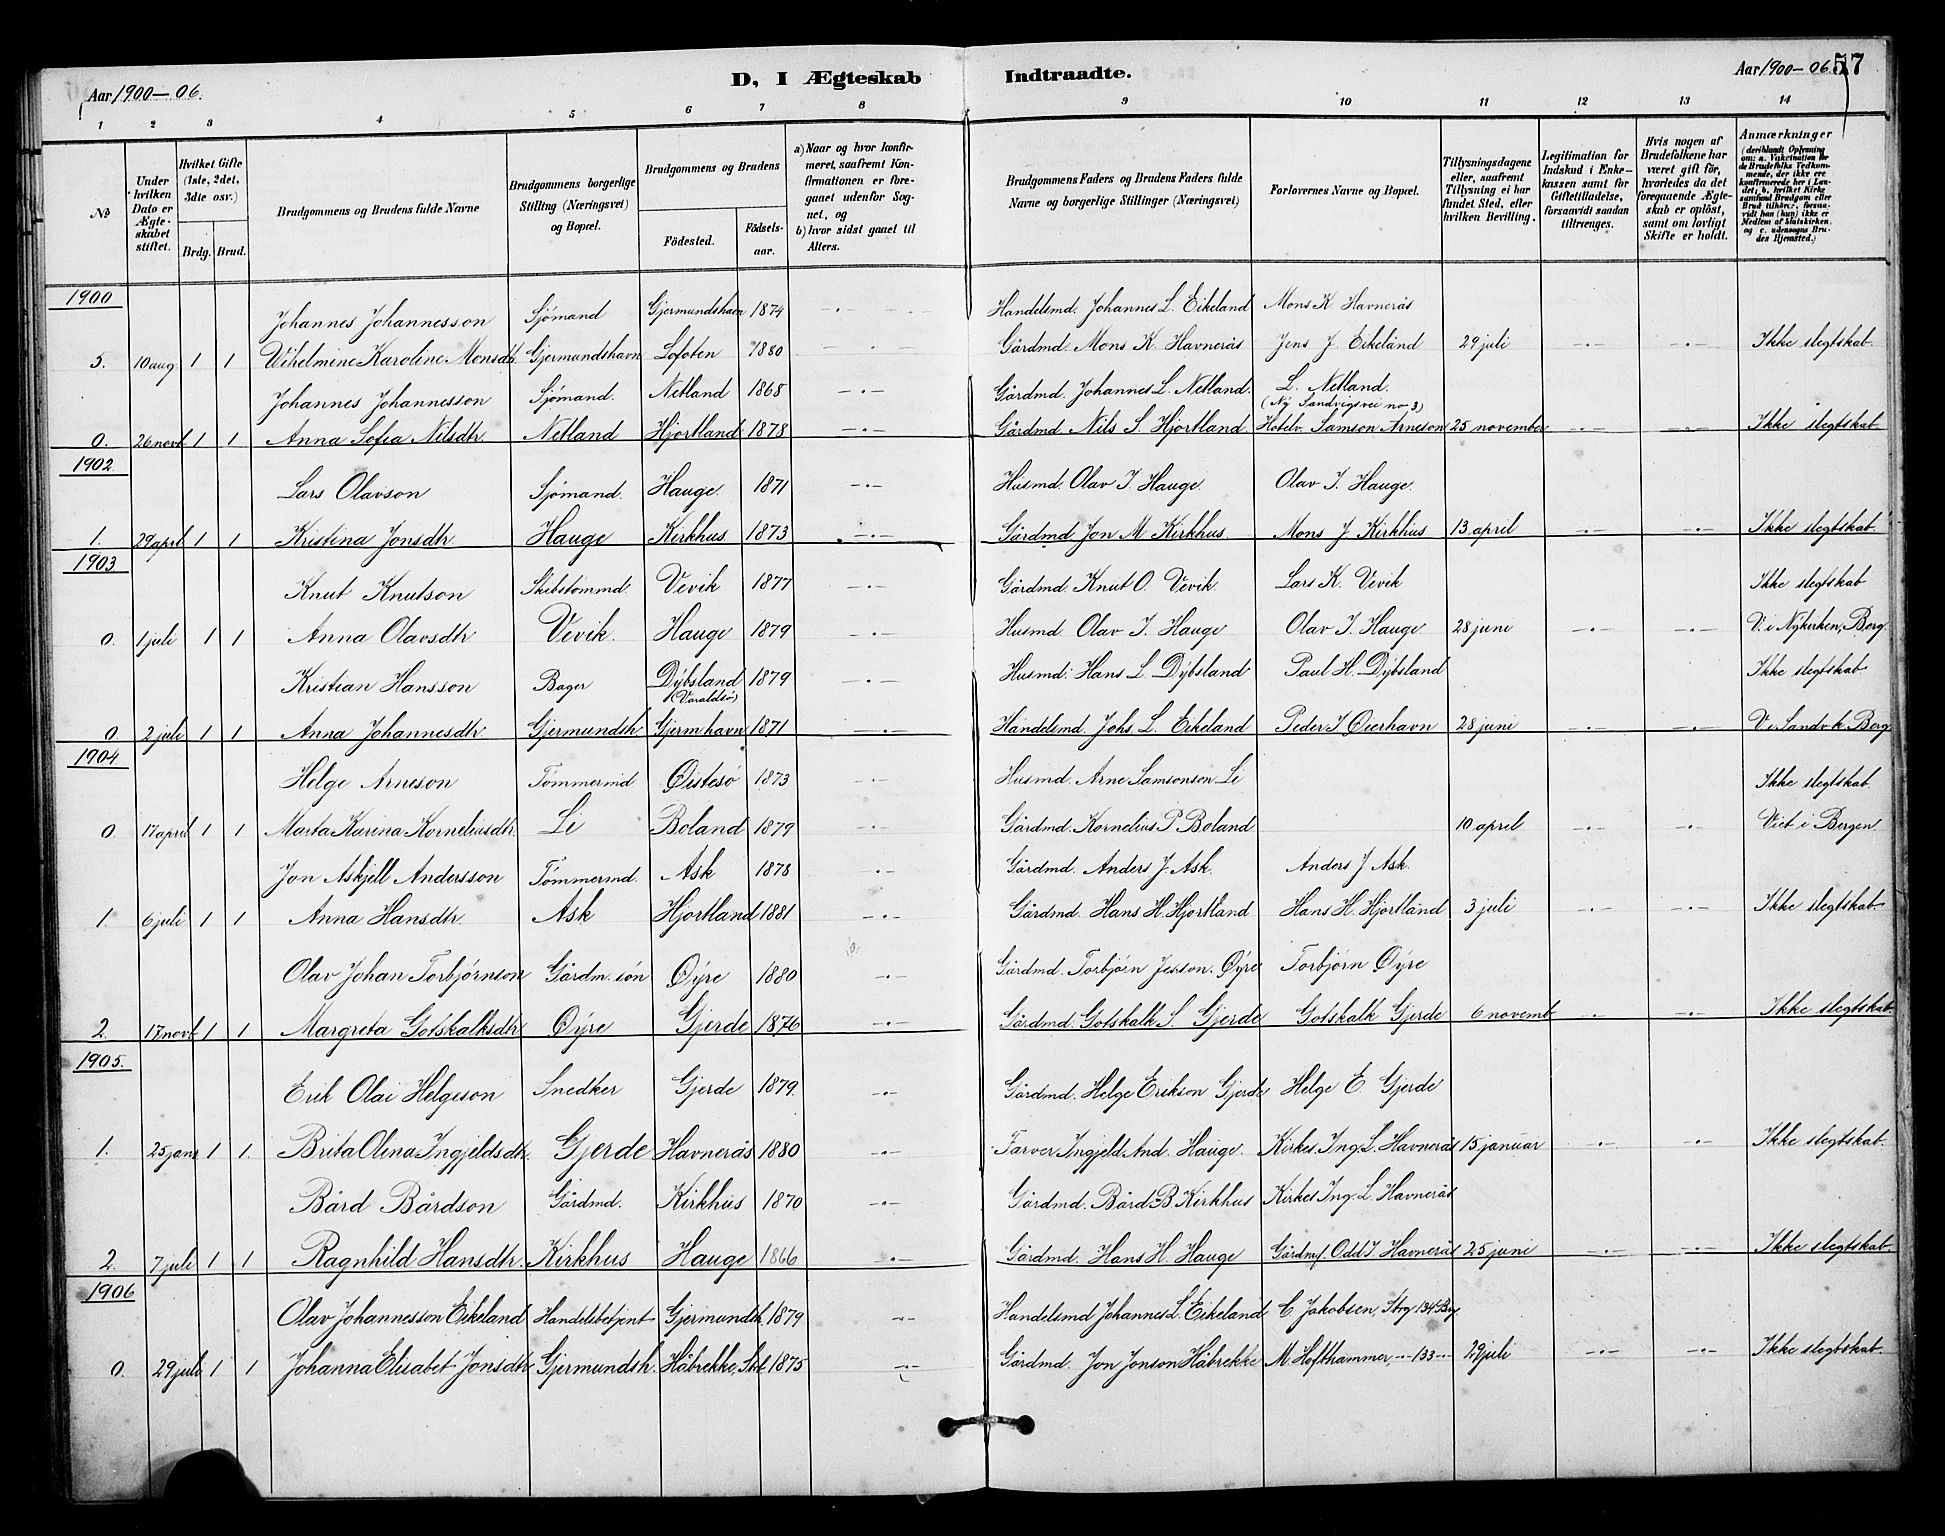 Aar 1900–06. D, I Ægteskab Indtraadte. Aar 1900–06. 57
1 2 3 4 5 6 7 8 9 10 11 12 13 14
No
Under hvilken Dato er Ægteskabet stiftet.
Hvilket Gifte (1ste, 2det, 3die osv.)
Brdg. Brud.
Brudgommens og Brudens fulde Navne
Brudgommens borgerlige Stilling (Næringsvei) og Bopæl.
Brudgommens og Brudens
Födested. Födselsaar.
a) Naar og hvor konfirmeret, saafremt Konfirmationen er foregaaet udenfor Sognet, og
b) hvor sidst gaaet til Alters.
Brudgommens Faders og Brudens Faders fulde Navne og borgerlige Stillinger (Næringsvei)
Forlovernes Navne og Bopæl.
Tillysningsdagene eller, saafremt Tillysning ei har fundet Sted, efter hvilken Bevilling.
Legitimation for Indskud i Enkekassen samt for Giftetilladelse, forsaavidt saadan tiltrænges.
Hvis nogen af Brudefolkene har været gift för, hvorledes da det foregaaende Ægteskab er oplöst, samt om lovligt Skifte er holdt.
Anmærkninger (deriblandt Oplysning om: a. Vakcination for de Brudefolks Vedkommende, der ikke ere konfirmerede her i Landet; b. hvilket Kirkesamfund Brudgom eller Brud tilhörer, forsaavidt han (hun) ikke er Medlem af Statskirken, og c. udensogns Brudes Hjemsted.)
1900
Johannes Johannesson Sjømand Gjermundshavn 1874 –·– Handelsmd. Johannes L. Eikeland Mons K. Havnerås
5. 10 aug. 1 1 Vilhelmine Karoline Monsdtr. Gjermundshavn Lofoten 1880 –·– Gårdmd. Mons K. Havnerås Jens J. Eikeland 29 juli –·– –·– Ikke slegtskab
Johannes Johannesson Sjømand. Netland 1868 –·– Gårdmd. Johannes L. Netland. L. Netland.
(Ny Sandvigsvei no 3)
0. 26 novb 1 1 Anna Sofia Nilsdtr. Netland Hjortland 1878 –·– Gårdmd Nils S. Hjortland. Hotelv. Samson Arneson 25 november –·– –·– Ikke slegtskab
1902.
Lars Olavson Sjømand. Hauge. 1871 –·– Husmd. Olav J. Hauge. Olav J. Hauge.
1. 29 april 1 1 Kristina Jonsdtr. Hauge Kirkhus 1873 –·– Gårdmd Jon M Kirkhus Mons J. Kirkhus 13 april –·– –·– Ikke slegtskab
1903
Knut Knutson Skibstømmd. Vevik 1877 –·– Gårdmd. Knut O. Vevik. Lars K. Vevik Ikke slegtskab
0. 1 juli 1 1 Anna Olavsdtr Vevik. Hauge 1879 –·– Husmd Olav J. Hauge Olav J. Hauge 28 juni –·– –·– V. i Nykirken, Berg.
Kristian Hansson Bager Dybsland 1879 –·– Husmd. Hans L. Dybsland Paul H. Dybsland Ikke slegtskab
(Varaldsø)
0 2 juli 1 1 Anna Johannesdtr Gjermundsh. Gjermhavn 1871 –·– Handelsmd. Johs. L. Eikeland Peder J Øierhavn 28 juni –·– –·– V. i Sandvk. Berg
1904
Helge Arneson Tømmermd Øistesø 1873 –·– Husmd. Arne Samsonson Li Ikke slegtskab
0. 17 april 1 1 Marta Karina Korneliusdtr. Li Boland 1879 –·– Gårdmd. Kornelius P. Boland 10 april –·– –·– Viet i Bergen
Jon Askjell Andersson Tømmermd. Ask 1878 –·– Gårdmd. Anders J. Ask. Anders J. Ask.
1. 6 juli 1 1 Anna Hansdtr. Ask Hjortland 1881 –·– Gårdmd. Hans H. Hjortland Hans H. Hjortland 3 juli –·– –·– Ikke slegtskab
Olav Johan Torbjørnson Gårdm. søn Øyre 1880 –·– Gårdmd. Torbjørn Jesson. Øyre Torbjørn Øyre
2. 17 novb 1 1 Margreta Gotskalksdtr Øyre Gjerde 1876 –·– Gårdmd. Gotskalk S. Gjerde Gotskalk Gjerde 6 novemb –·– –·– Ikke slegtskab
1905.
Erik Olai Helgeson Snedker Gjerde 1879. –·– Gårdmd. Helge Erikson Gjerde Helge E. Gjerde
1. 25 janr 1 1. Brita Olina Ingjeldsdtr. Gjerde Havnerås 1880 –·– Farver Ingjeld And. Hauge. Kirkes. Ing. L. Havnerås 15 januar –·– –·– Ikke slegtskab
Bård Bårdson Gårdmd. Kirkhus 1870 –·– Gårdmd. Bård B. Kirkhus Kirkes Ing. L. Havnerås
2. 7 juli 1 1 Ragnhild Hansdtr. Kirkhus Hauge 1866 –·– Gårdmd. Hans H. Hauge Gårdmd. Odd J. Havnerås 25 juni –·– –·– Ikke slegtskab
1906
Olav Johannesson Eikeland Handelsbetjent Gjermundsh. 1879 –·– Handelsmd Johannes L. Eikeland C Jakobsen, Strg 134 Bg
0. 29 juli 1 1 Johanna Elisabet Jonsdtr Gjermundsh. Håbrekke, 1875 –·– Gårdmd. Jon Jonson Håbrekke M Hofthammer, –·–133–·– 29 juli –·– –·– Ikke slegtskab.